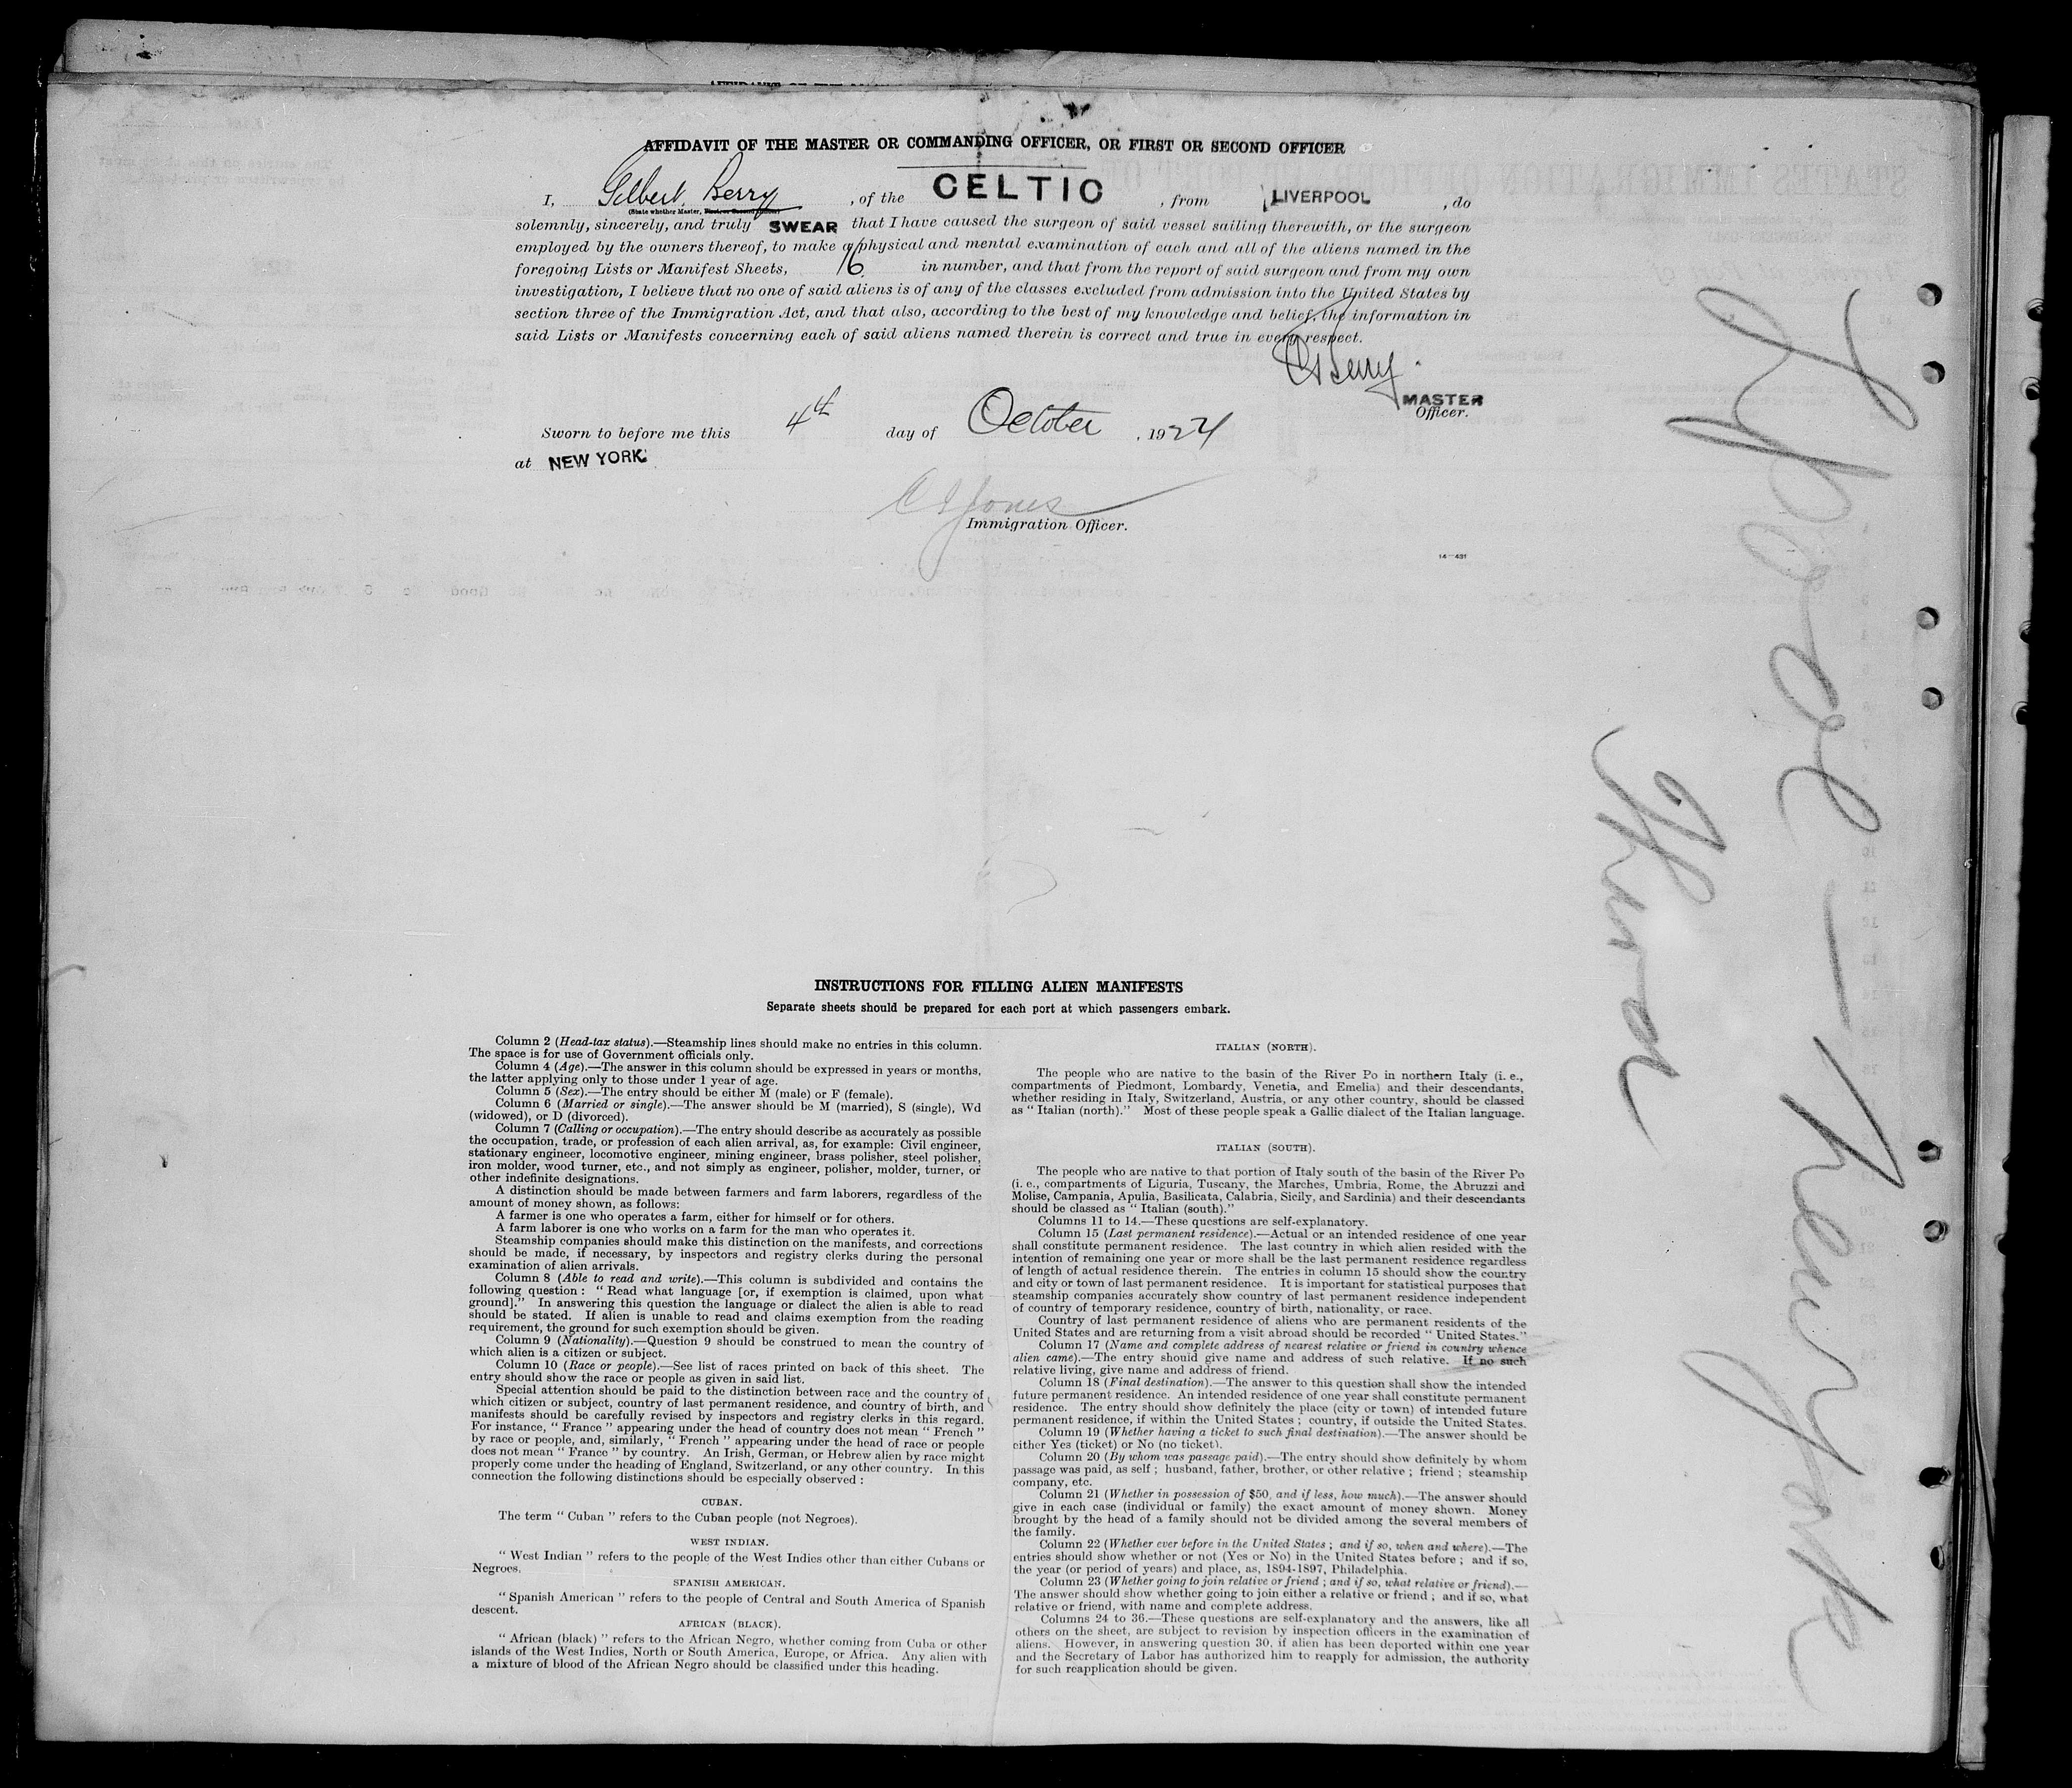 AFFIDAVIT OF THE MASTER OR COMMANDING OFFICER, OR FIRST OR SECOND OFFICER
I, Gilbert Berry, of the CELTIC, from LIVERPOOL, do
(State whether Master, First, or Second Officer)
solemnly, sincerely, and truly SWEAR that I have caused the surgeon of said vessel sailing therewith, or the surgeon
employed by the owners thereof, to make a physical and mental examination of each and all of the aliens named in the
foregoing Lists or Manifest Sheets, 16 in number, and that from the report of said surgeon and from my own
investigation, I believe that no one of said aliens is of any of the classes excluded from admission into the United States by
section three of the Immigration Act, and that also, according to the best of my knowledge and belief, the information in
said Lists or Manifests concerning each of said aliens named therein is correct and true in every respect.
G Berry.
MASTER
Officer.
Sworn to before me this 4th day of October, 1924
at NEW YORK.
C S Jones
Immigration Officer.
14—431
L'pool – New York
Third
INSTRUCTIONS FOR FILLING ALIEN MANIFESTS
Separate sheets should be prepared for each port at which passengers embark.
Column 2 (Head-tax status).—Steamship lines should make no entries in this column.
The space is for use of Government officials only.
Column 4 (Age).—The answer in this column should be expressed in years or months,
the latter applying only to those under 1 year of age.
Column 5 (Sex).—The entry should be either M (male) or F (female).
Column 6 (Married or single).—The answer should be M (married), S (single), Wd
(widowed), or D (divorced).
Column 7 (Calling or occupation).—The entry should describe as accurately as possible
the occupation, trade, or profession of each alien arrival, as, for example: Civil engineer,
stationary engineer, locomotive engineer, mining engineer, brass polisher, steel polisher,
iron molder, wood turner, etc., and not simply as engineer, polisher, molder, turner, or
other indefinite designations.
A distinction should be made between farmers and farm laborers, regardless of the
amount of money shown, as follows:
A farmer is one who operates a farm, either for himself or for others.
A farm laborer is one who works on a farm for the man who operates it.
Steamship companies should make this distinction on the manifests, and corrections
should be made, if necessary, by inspectors and registry clerks during the personal
examination of alien arrivals.
Column 8 (Able to read and write).—This column is subdivided and contains the
following question: "Read what language [or, if exemption is claimed, upon what
ground]." In answering this question the language or dialect the alien is able to read
should be stated. If alien is unable to read and claims exemption from the reading
requirement, the ground for such exemption should be given.
Column 9 (Nationality).—Question 9 should be construed to mean the country of
which alien is a citizen or subject.
Column 10 (Race or people).—See list of races printed on back of this sheet. The
entry should show the race or people as given in said list.
Special attention should be paid to the distinction between race and the country of
which citizen or subject, country of last permanent residence, and country of birth, and
manifests should be carefully revised by inspectors and registry clerks in this regard.
For instance, "France" appearing under the head of country does not mean "French"
by race or people, and, similarly, "French" appearing under the head of race or people
does not mean "France" by country. An Irish, German, or Hebrew alien by race might
properly come under the heading of England, Switzerland, or any other country. In this
connection the following distinctions should be especially observed:
CUBAN.
The term "Cuban" refers to the Cuban people (not Negroes).
WEST INDIAN.
"West Indian" refers to the people of the West Indies other than either Cubans or
Negroes.
SPANISH AMERICAN.
"Spanish American" refers to the people of Central and South America of Spanish
descent.
AFRICAN (BLACK).
"African (black)" refers to the African Negro, whether coming from Cuba or other
islands of the West Indies, North or South America, Europe, or Africa. Any alien with
a mixture of blood of the African Negro should be classified under this heading.
ITALIAN (NORTH).
The people who are native to the basin of the River Po in northern Italy (i. e.,
compartments of Piedmont, Lombardy, Venetia, and Emelia) and their descendants,
whether residing in Italy, Switzerland, Austria, or any other country, should be classed
as "Italian (north)." Most of these people speak a Gallic dialect of the Italian language.
ITALIAN (SOUTH).
The people who are native to that portion of Italy south of the basin of the River Po
(i. e., compartments of Liguria, Tuscany, the Marches, Umbria, Rome, the Abruzzi and
Molise, Campania, Apulia, Basilicata, Calabria, Sicily, and Sardinia) and their descendants
should be classed as "Italian (south)."
Columns 11 to 14.—These questions are self-explanatory.
Column 15 (Last permanent residence).—Actual or an intended residence of one year
shall constitute permanent residence. The last country in which alien resided with the
intention of remaining one year or more shall be the last permanent residence regardless
of length of actual residence therein. The entries in column 15 should show the country
and city or town of last permanent residence. It is important for statistical purposes that
steamship companies accurately show country of last permanent residence independent
of country of temporary residence, country of birth, nationality, or race.
Country of last permanent residence of aliens who are permanent residents of the
United States and are returning from a visit abroad should be recorded "United States."
Column 17 (Name and complete address of nearest relative or friend in country whence
alien came).—The entry should give name and address of such relative. If no such
relative living, give name and address of friend.
Column 18 (Final destination).—The answer to this question shall show the intended
future permanent residence. An intended residence of one year shall constitute permanent
residence. The entry should show definitely the place (city or town) of intended future
permanent residence, if within the United States; country, if outside the United States.
Column 19 (Whether having a ticket to such final destination).—The answer should be
either Yes (ticket) or No (no ticket).
Column 20 (By whom was passage paid).—The entry should show definitely by whom
passage was paid, as self; husband, father, brother, or other relative; friend; steamship
company, etc.
Column 21 (Whether in possession of $50, and if less, how much).—The answer should
give in each case (individual or family) the exact amount of money shown. Money
brought by the head of a family should not be divided among the several members of
the family.
Column 22 (Whether ever before in the United States; and if so, when and where).—The
entries should show whether or not (Yes or No) in the United States before; and if so,
the year (or period of years) and place, as, 1894-1897, Philadelphia.
Column 23 (Whether going to join relative or friend; and if so, what relative or friend).—
The answer should show whether going to join either a relative or friend; and if so, what
relative or friend, with name and complete address.
Columns 24 to 36.—These questions are self-explanatory and the answers, like all
others on the sheet, are subject to revision by inspection officers in the examination of
aliens. However, in answering question 30, if alien has been deported within one year
and the Secretary of Labor has authorized him to reapply for admission, the authority
for such reapplication should be given.